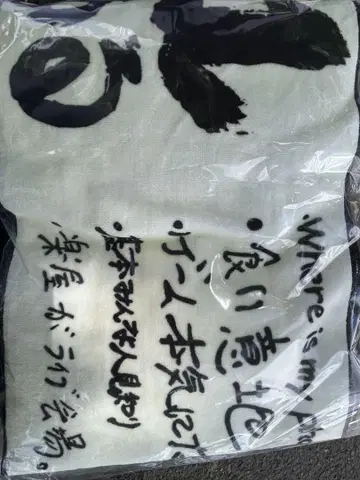 Where is my
・食い意地
・ゲーム本気に
・基本みんな人見知り
楽屋がライブ会場。